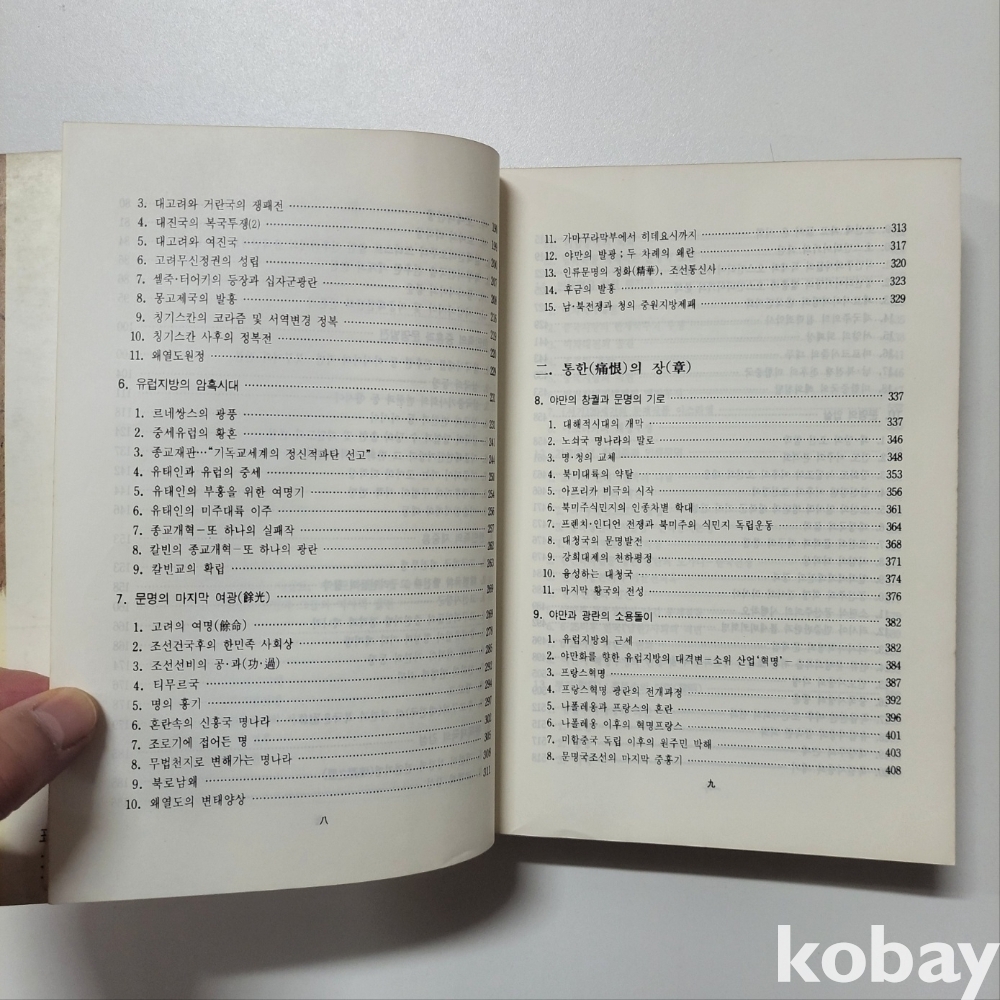 3. 대고려와 거란국의 쟁패전
4. 대진국의 복국투쟁(2) 198
5. 대고려와 여진국 199
6. 고려무신정권의 성립 206
7. 셀죽·터어키의 등장과 십자군광란 207
8. 몽고제국의 발흥 208
9. 칭기스칸의 코라즘 및 서역변경 정복 216
10. 칭기스칸 사후의 정복전 220
11. 왜열도원정 229
6. 유럽지방의 암흑시대 231
1. 르네쌍스의 광풍 231
2. 중세유럽의 황혼 241
3. 종교재판…“기독교세계의 정신적파탄 선고” 244
4. 유태인과 유럽의 중세 250
5. 유태인의 부흥을 위한 여명기 254
6. 유태인의 미주대륙 이주 256
7. 종교개혁－또 하나의 실패작 257
8. 칼빈의 종교개혁－또 하나의 광란 262
9. 칼빈교의 확립 263
7. 문명의 마지막 여광(餘光) 269
1. 고려의 여명(餘命) 269
2. 조선건국후의 한민족 사회상 278
3. 조선선비의 공·과(功·過) 286
4. 티무르국 294
5. 명의 흥기 297
6. 혼란속의 신흥국 명나라 302
7. 조로기에 접어든 명 305
8. 무법천지로 변해가는 명나라 308
9. 북로남왜 311
10. 왜열도의 변태양상
八
11. 가마꾸라막부에서 히데요시까지 313
12. 야만의 발광; 두 차례의 왜란 317
13. 인류문명의 정화(精華), 조선통신사 320
14. 후금의 발흥 323
15. 남·북전쟁과 청의 중원지방제패 329
二. 통한(痛恨)의 장(章)
8. 야만의 창궐과 문명의 기로 337
1. 대해적시대의 개막 337
2. 노쇠국 명나라의 말로 346
3. 명·청의 교체 348
4. 북미대륙의 약탈 353
5. 아프리카 비극의 시작 356
6. 북미주식민지의 인종차별 학대 361
7. 프랜치·인디언 전쟁과 북미주의 식민지 독립운동 364
8. 대청국의 문명발전 368
9. 강희대제의 천하평정 371
10. 융성하는 대청국 374
11. 마지막 황국의 전성 376
9. 야만과 광란의 소용돌이 382
1. 유럽지방의 근세 382
2. 야만화를 향한 유럽지방의 대격변－소위 산업‘혁명’－ 384
3. 프랑스혁명 387
4. 프랑스혁명 광란의 전개과정 392
5. 나폴레옹과 프랑스의 혼란 396
6. 나폴레옹 이후의 혁명프랑스 401
7. 미합중국 독립 이후의 원주민 박해 403
8. 문명국조선의 마지막 중흥기 408
九
kobay